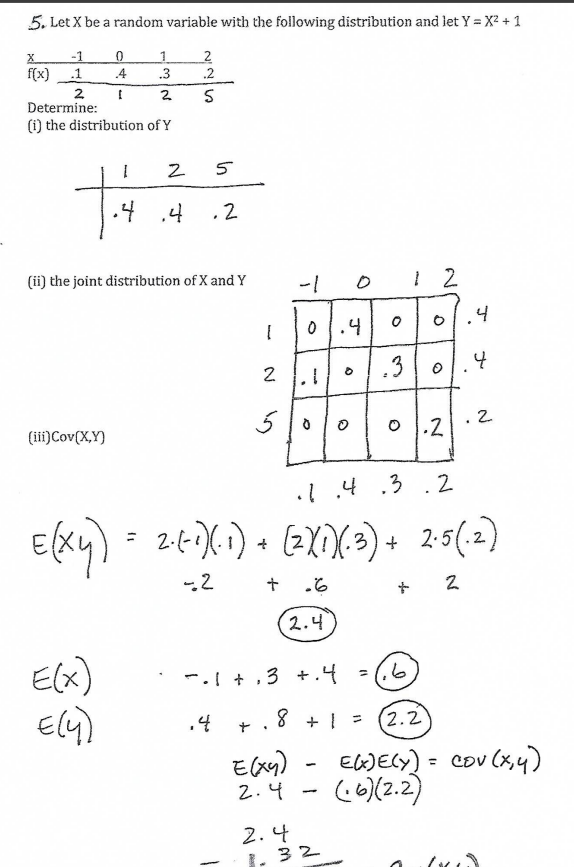 5. Let X be a random variable with the following distribution and let Y = X² + 1
x -1 0 1 2
f(x) .1 .4 .3 .2
2 1 2 5
Determine:
(i) the distribution of Y
1 2 5
.4 .4 .2
(ii) the joint distribution of X and Y
-1 0 1 2
1 0 .4 0 0 .4
2 .1 0 .3 0 .4
5 0 0 0 .2 .2
(iii)Cov(X,Y)
.1 .4 .3 .2
E(xy) = 2·(-1)(.1) + (2)(1)(.3) + 2·5(.2)
-.2 + .6 + 2
2.4
E(x) -.1 + .3 + .4 = .6
E(y) .4 + .8 + 1 = 2.2
E(xy) - E(x)E(y) = cov(x,y)
2.4 - (.6)(2.2)
2.4
- 1.32